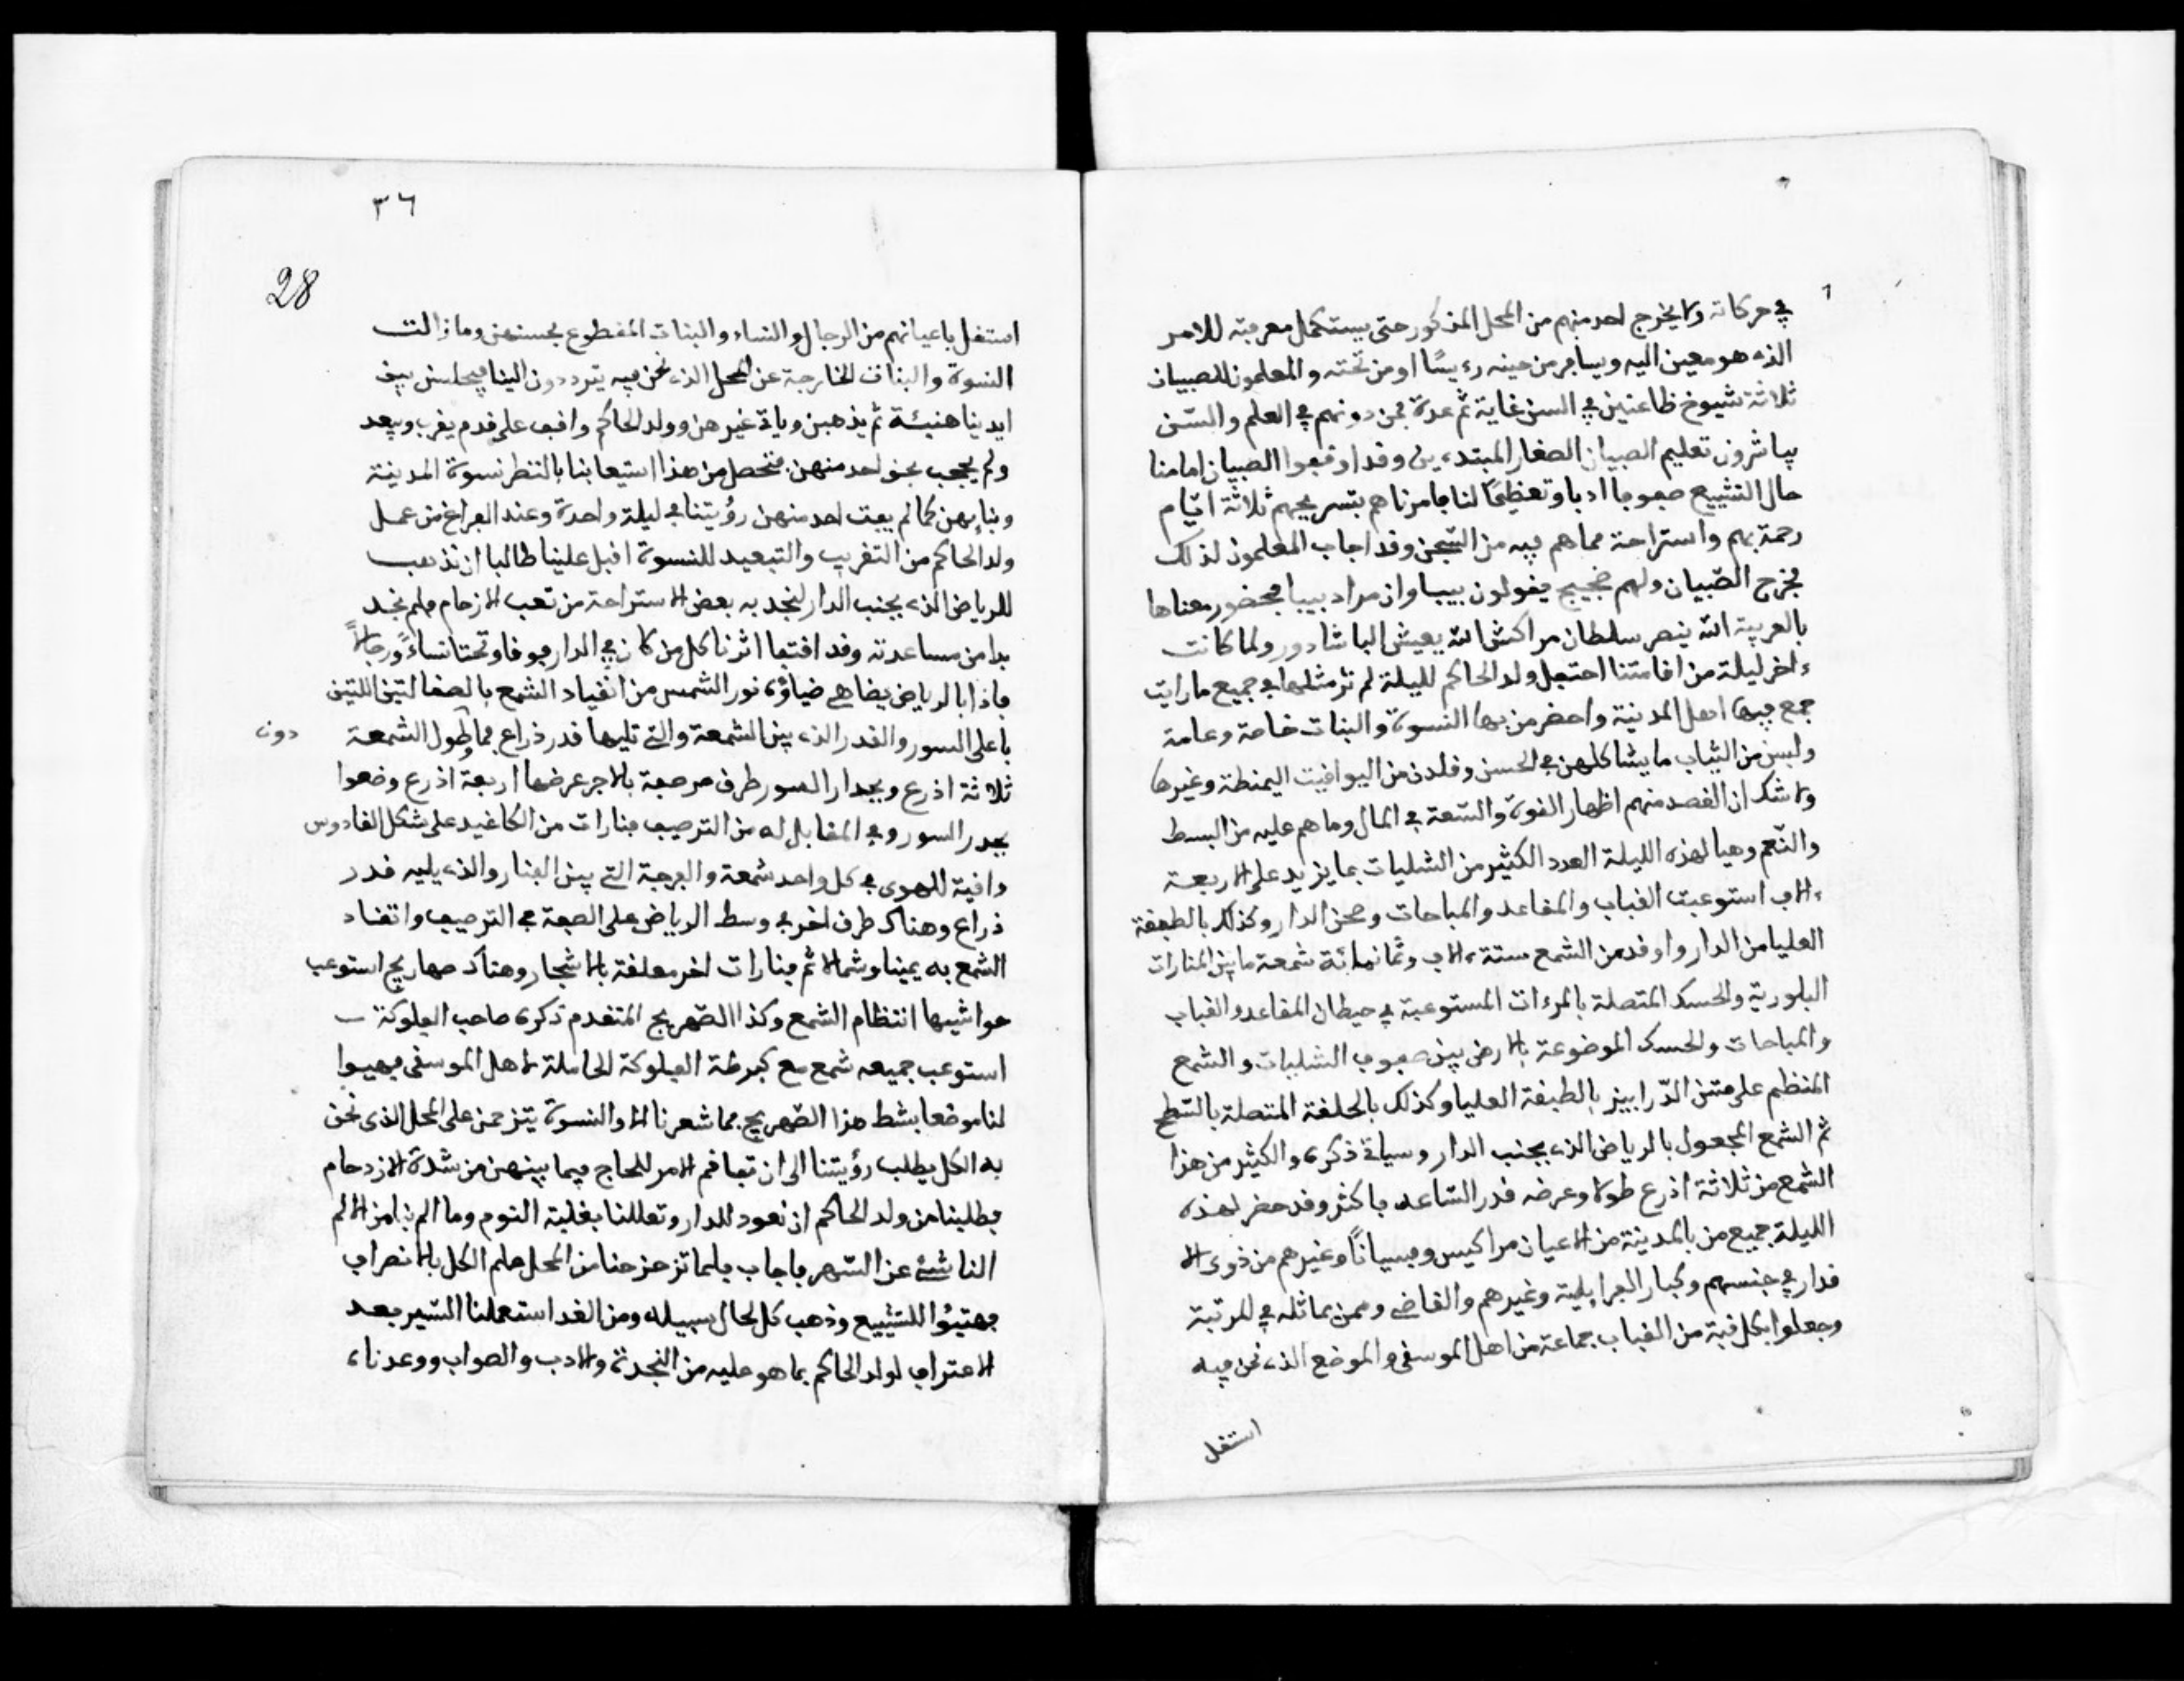 في حركاته ولا يخرج احد منهم من المحل المذكور حتى يستكمل معرفته للامر
الذي هو معين اليه ويسافر من حينه رءيسًا او من تحته والمعلمون للصبيان
ثلاثة شيوخ ظاعنين في السن غاية ثم عدة ممن دونهم في العلم والسّن
يباشرون تعليم الصبيان الصغار المبتدءين وقد اوقفوا الصبيان امامنا
حال التشييع صفوفا ادبا وتعظيمًا لنا فامرناهم بتسريحهم ثلاثة ايّام
رحمة بهم واستراحة مما هم فيه من السّجن وقد اجاب المعلمون لذلك
فخرج الصّبيان ولهم ضجيج يقولون بيبا وان مراد بيبا فحضور معناها
بالعربية الله ينصر سلطان مراكش الله يعيش الباشادور ولما كانت
ءاخر ليلة من اقامتنا احتفل ولد الحاكم لليلة لم نر مثلها في جميع ما رايت
جمع فيها اهل المدينة واحضر من بها النسوة والبنات خاصة وعامة
ولبسن من الثياب ما يشاكلهن في الحسن وقلدن من اليواقيت اليمنطة وغيرها
ولا شك ان القصد منهم اظهار القوة والسّعة في المال وما هم عليه من البسط
والنّعم وهيا لهذه الليلة العدد الكثير من الشليات بما يزيد على الاربعة
ءالاف استوعبت القباب والمقاعد والمباحات وصحن الدار وكذلك بالطبقة
العليا من الدار واوقد من الشمع ستة ءالاف وثمانمائة شمعة ما بين المنارات
البلورية والحسك المتصلة بالمرءات المستوعبة في حيطان المقاعد والقباب
والمباحات والحسك الموضوعة بالارض بين صفوف الشليات والشمع
المنظم على متن الدّرابيز بالطبقة العليا وكذلك بالحلقة المتصلة بالسّطح
ثم الشمع المجعول بالرياض الذي بجنب الدار وسياتي ذكره والكثير من هذا
الشمع من ثلاثة اذرع طولا وعرضه قدر السّاعد فاكثر وقد حضر لهذه
الليلة جميع من بالمدينة من الاعيان مراكيس وفسيانًا وغيرهم من ذوي الا
قدار في جنسهم وكبار الفرايلية وغيرهم والقاضي وممن يماثله في المرتبة
وجعلوا بكل قبة من القباب جماعة من اهل الموسقى والموضع الذي نحن فيه
استقل
٣٦
28
استقل باعيانهم من الرجال والنساء والبنات المقطوع بحسنهن وما زالت
النسوة والبنات الخارجة عن المحل الذي نحن فيه يترددون الينا فيجلسن بين
ايدينا هنيئة ثم يذهبن وياتي غيرهن وولد الحاكم واقف على قدم يقرب ويبعد
ولم يجحف بحق احد منهن فتحصل من هذا استيعابنا بالنظر نسوة المدينة
وبناتهن كما لم يفت احد منهن رؤيتنا في ليلة واحدة وعند الفراغ من عمل
ولد الحاكم من التقريب والتبعيد للنسوة اقبل علينا طالبا ان نذهب
للرياض الذي بجنب الدار لنجد به بعض الاستراحة من تعب الازحام فلم نجد
بدا من مساعدته وقد اقتفا اثرنا كل من كان في الدار فوقا وتحتا نساءً ورجالاً
فاذا بالرياض يضاهي ضياؤه نور الشمس من اتقياد الشمع بالصقالتين اللتين
باعلى السور والقدر الذي بين الشمعة والتي تليها قدر ذراع فما وطول الشمعة
دون
ثلاثة اذرع وبجدار السور طرف مرصفة بالاجر عرضها اربعة اذرع وضعوا
بجدر السور وفي المقابل له من الترصيف فنارات من الكاغيد على شكل القادوس
واقية للهوى في كل واحد شمعة والفرجة التي بين الفنار والذي يليه قدر
ذراع وهناك طرف اخر في وسط الرياض على الصفة في الترصيف واتقاد
الشمع به يمينا وشمالا ثم فنارات اخر معلقة بالاشجار وهناك صهاريج استوعب
حواشيها انتظام الشمع وكذا الصّهريج المتقدم ذكره صاحب الفلوكة
استوعب جميعه شمع مع كبرطة الفلوكة الحاملة لاهل الموسقى فهيوا
لنا موضعا بشط هذا الصّهريج فما شعرنا الا والنسوة يتزحمن على المحل الذي نحن
به الكل يطلب رؤيتنا الى ان تفاقم الامر للحاج فيما بينهن من شدة الازدحام
فطلبنا من ولد الحاكم ان نعود للدار وتعللنا بغلبة النوم وما الم بنا من الالم
الناشئ عن السّهر فاجاب فلما تزحزحنا من المحل علم الكل بالانصراف
فهتيئوا للتشييع وذهب كل لحال سبيله ومن الغد استعملنا السّير بعد
الاعتراف لولد الحاكم بما هو عليه من النجدة والادب والصواب ووعدناه